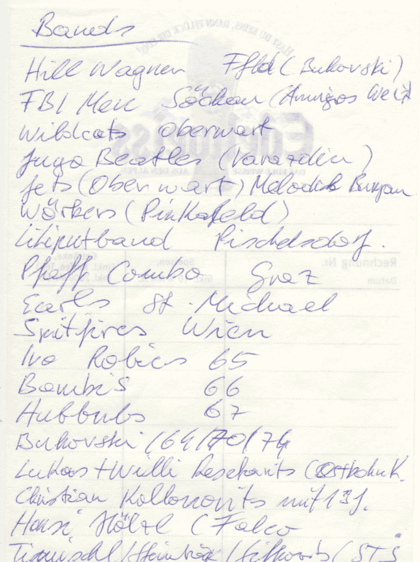 Bands
Hill Wagner Ffld (Bukovski)
FBI Men (Amigos
Wildcats Oberwart
Jugo Beatles (Varazdin)
Jets (Oberwart) Melodick
Wörkers (Pinkafeld)
Liliputband Pischelsdorf.
Pfaff Combo Graz
Earls St. Michael
Spitfires Wien
Ivo Robics 65
Bambis 66
Hubbubs 67
Bukovski /69/70/74
Lukas + Willi Resetarits (Ostbahn K.
Christian Kollonovits mit 13 J.
Hansi Hölzl (Falco
(STS
Edelweiss
Rechnung Nr.
Datum